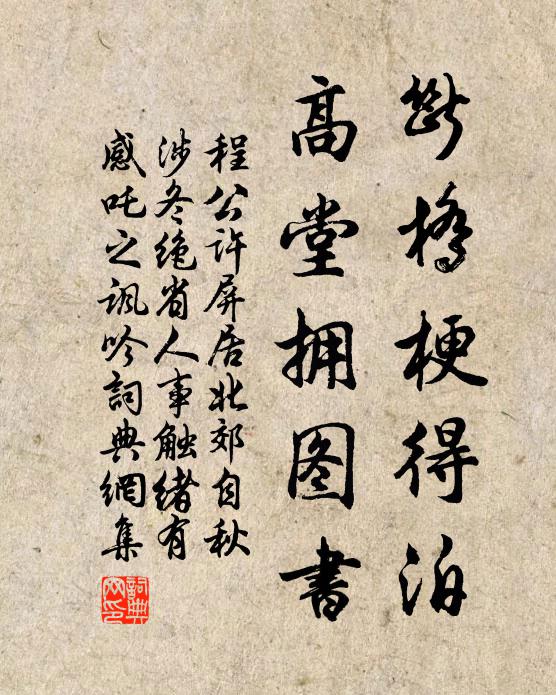 断桥梗得泊
高堂拥图書
程公许屏居北郊自秋
涉冬绝省人事触绪有
感吒之讽吟詞典網集
詞典
网印